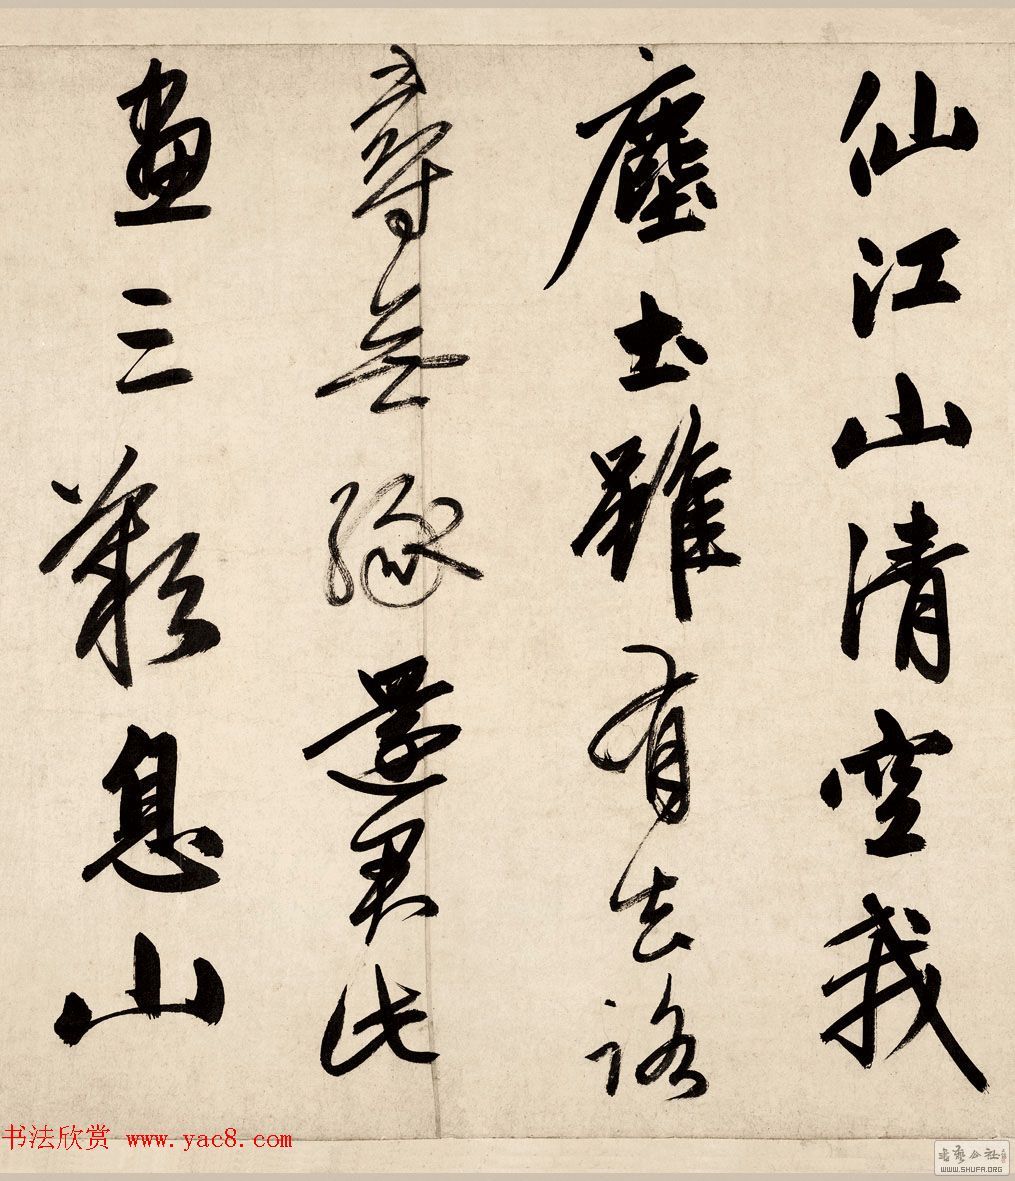 仙江山清空我
塵土雖有去路
尋無緣還君此
畫三歎息山
书法欣赏 www.yac8.com
书艺公社
WWW.SHUFA.ORG